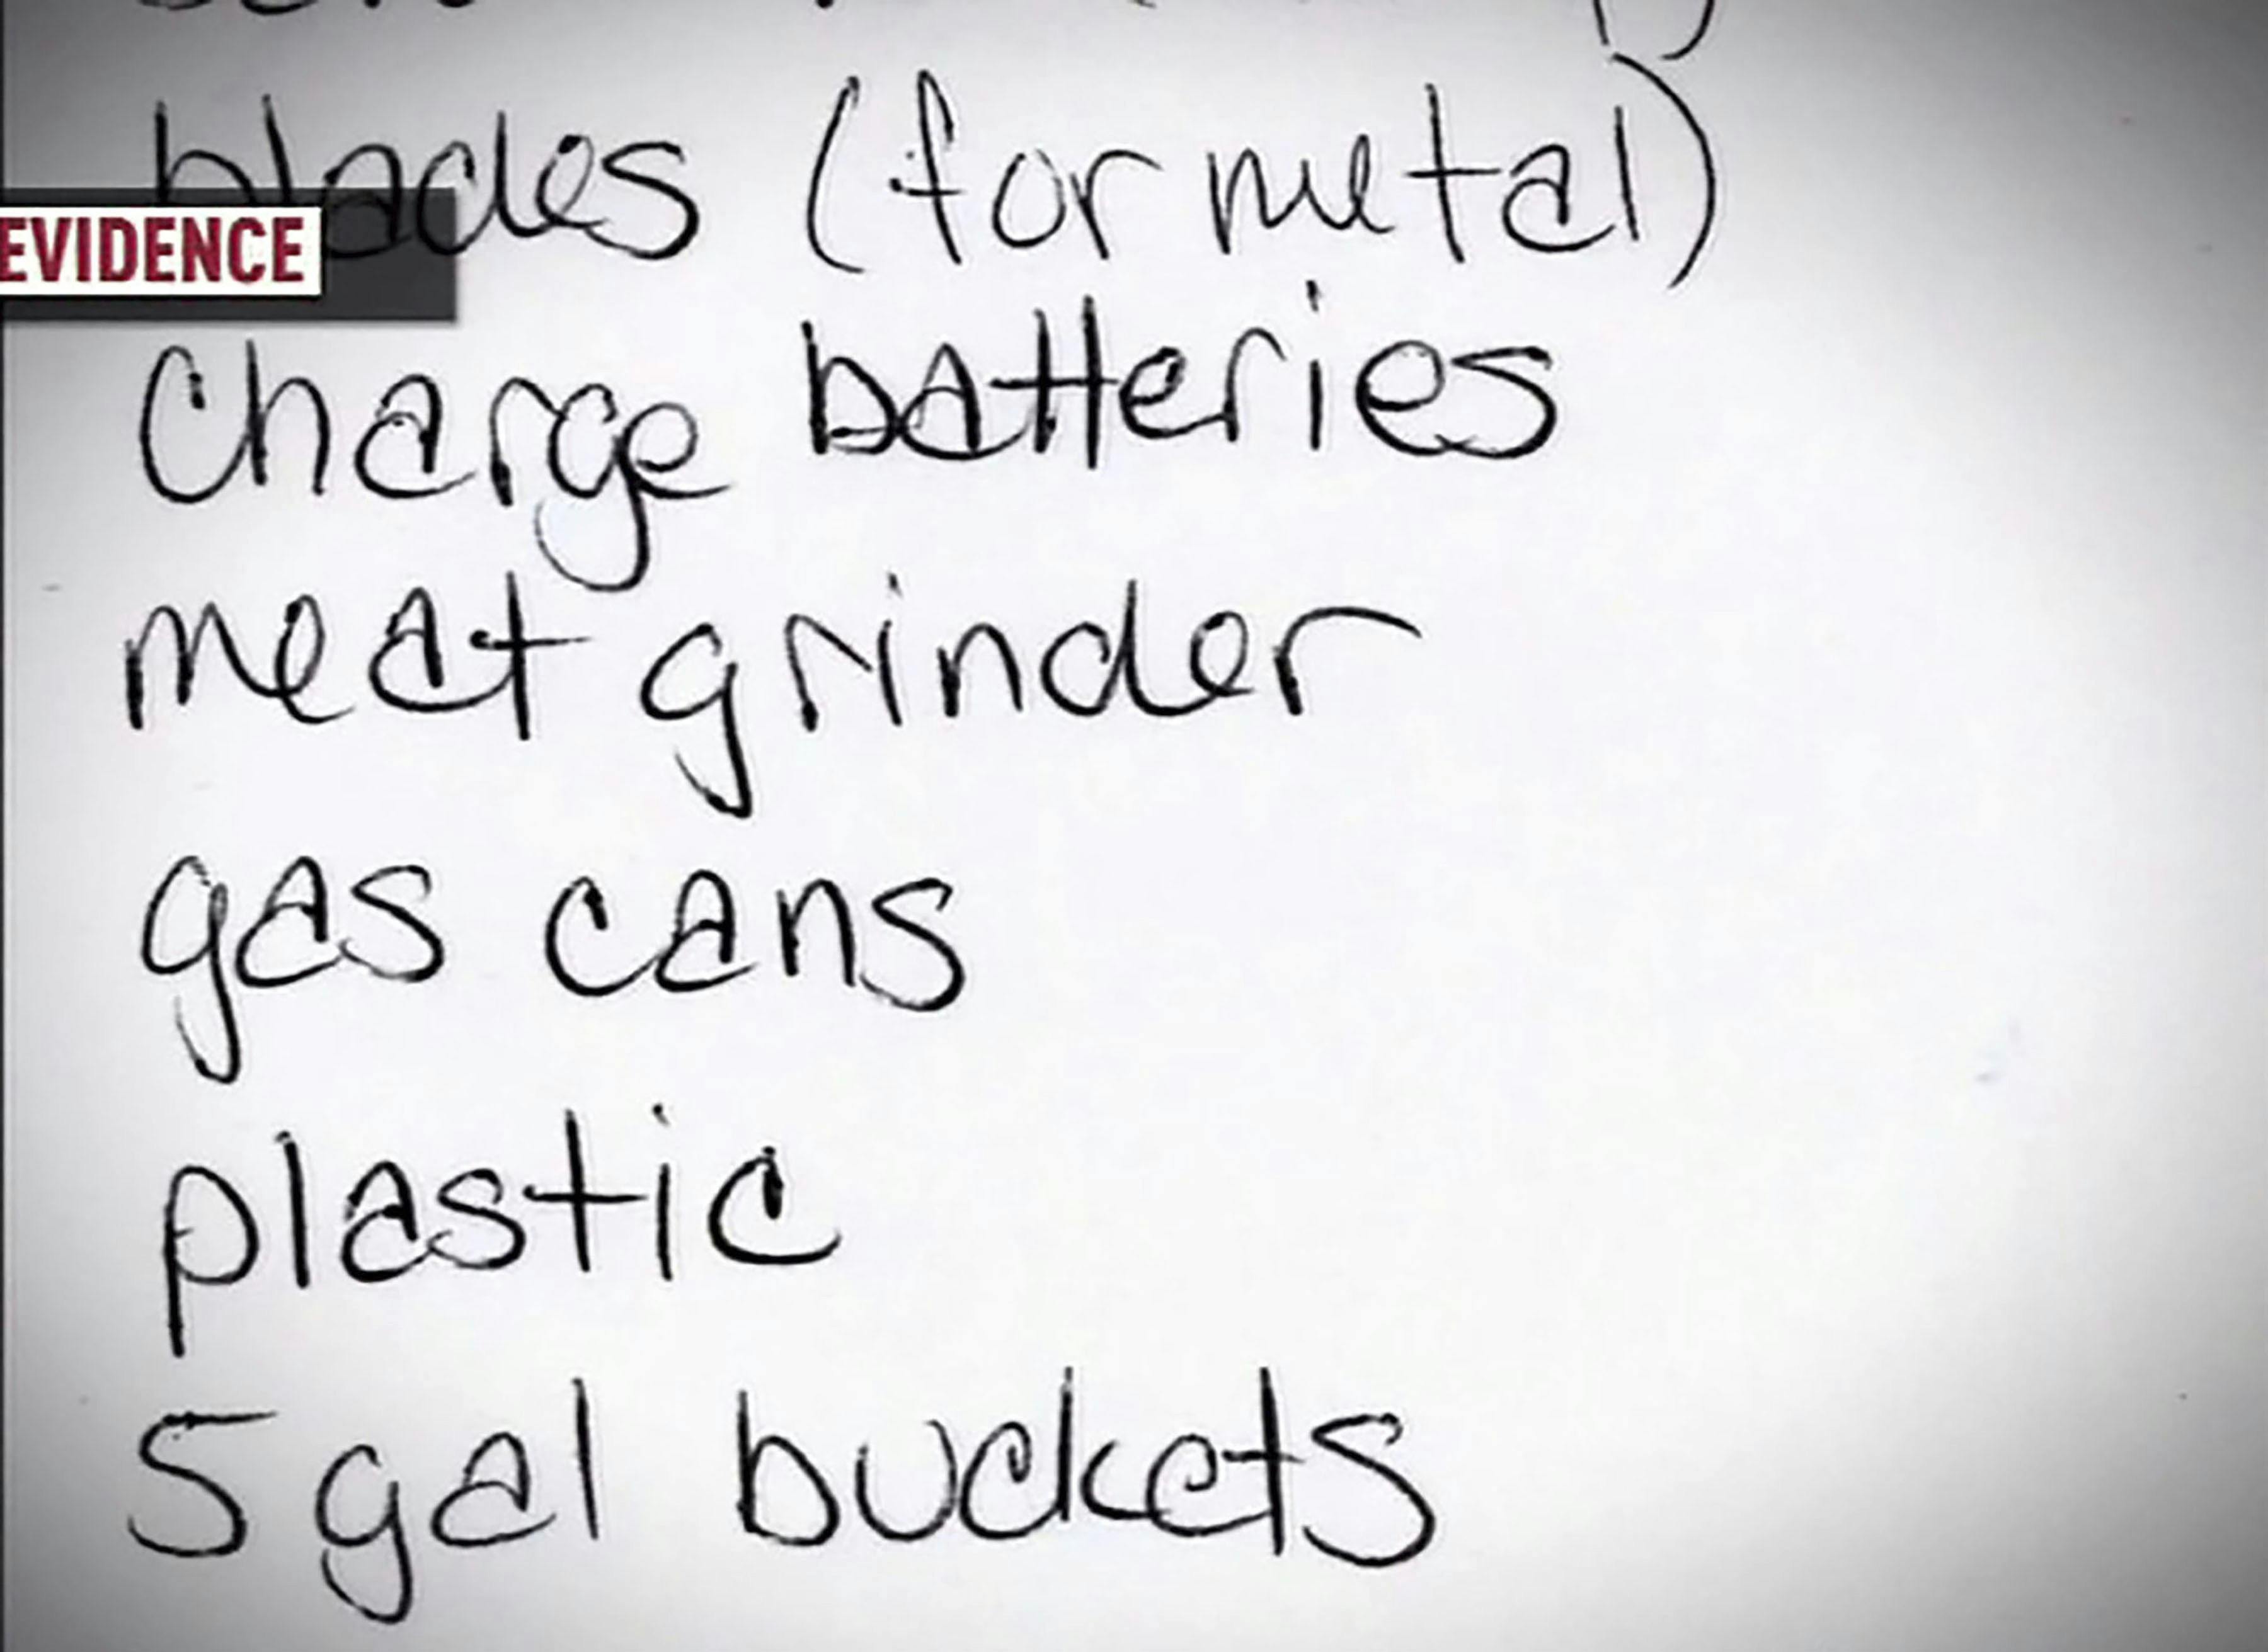 blades (for metal)
EVIDENCE
Charge batteries
meat grinder
gas cans
plastic
5 gal buckets